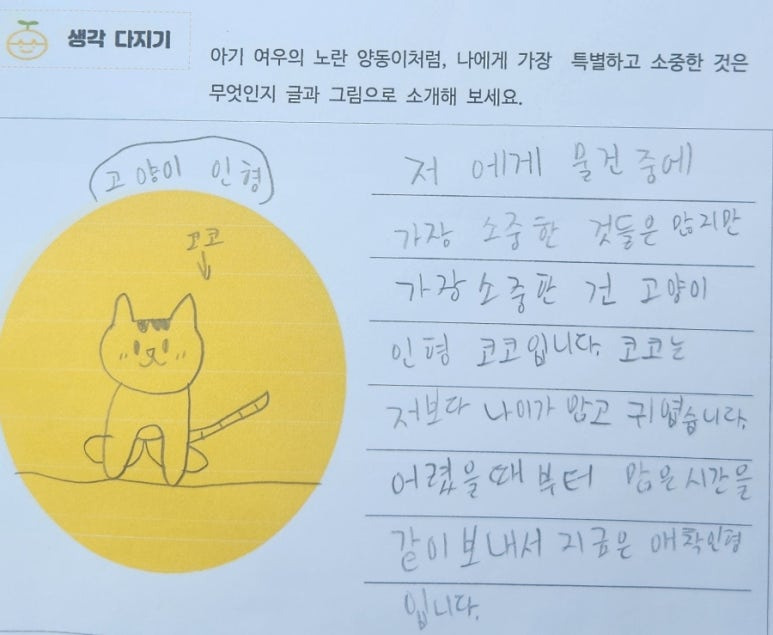 생각 다지기
아기 여우의 노란 양동이처럼, 나에게 가장 특별하고 소중한 것은
무엇인지 글과 그림으로 소개해 보세요.
고양이 인형
코코
저 에게 물건 중에
가장 소중한 것들은 많지만
가장 소중한 건 고양이
인형 코코입니다. 코코는
저보다 나이가 많고 귀엽습니다.
어렸을때 부터 많은 시간을
같이 보내서 지금은 애착인형
입니다.